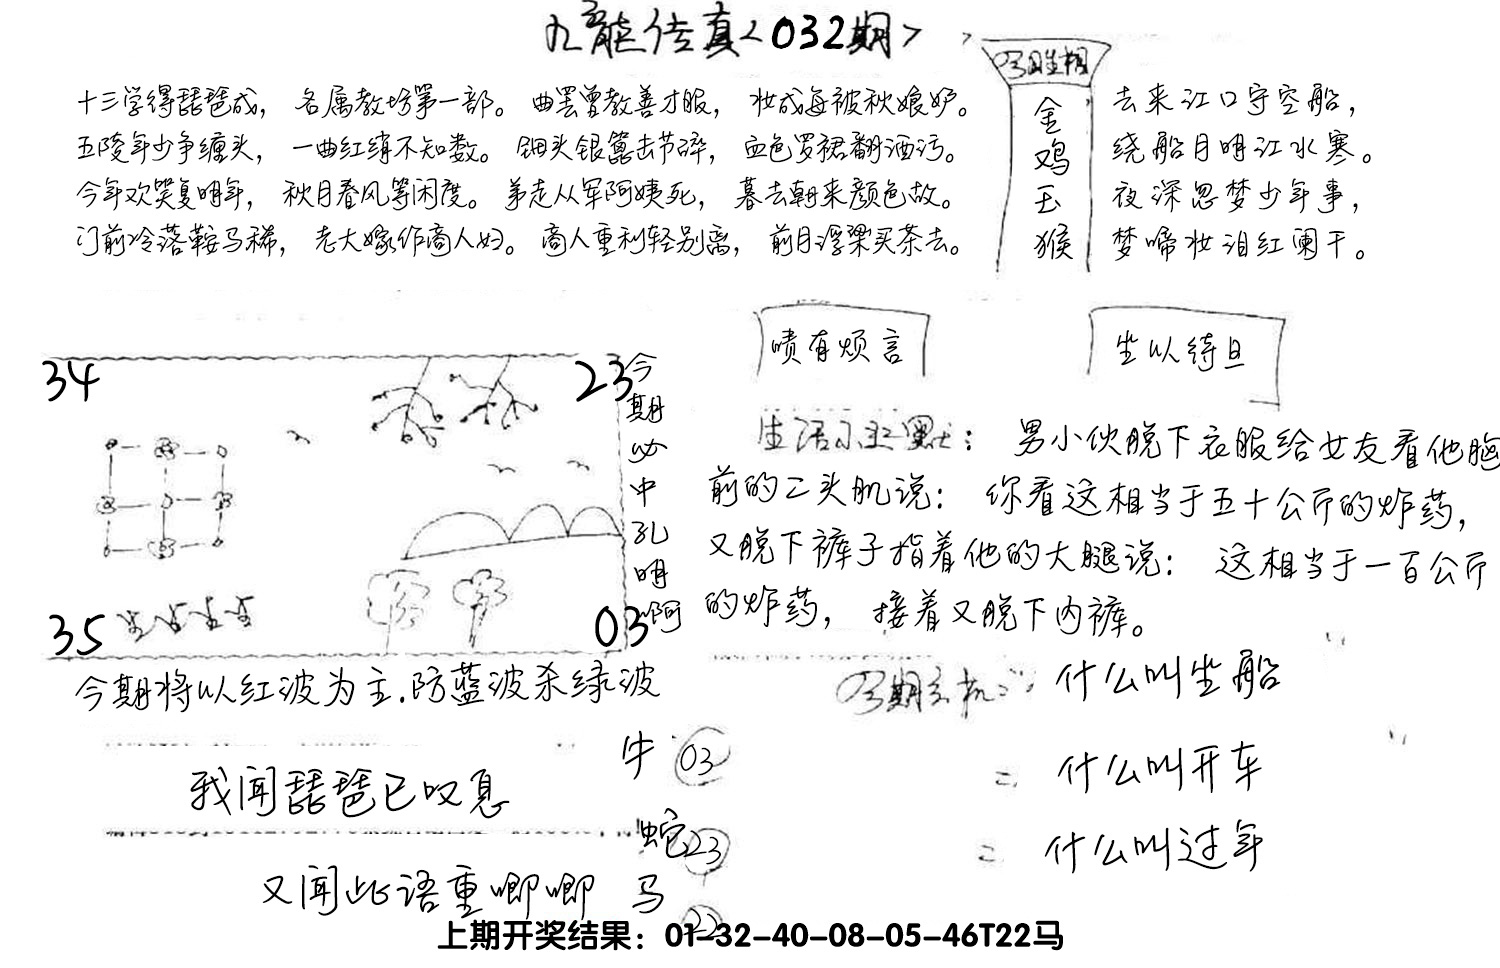 九龙传真<032期>
十三学得琵琶成，名属教坊第一部。曲罢曾教善才服，妆成每被秋娘妒。
五陵年少争缠头，一曲红绡不知数。钿头银篦击节碎，血色罗裙翻酒污。
今年欢笑复明年，秋月春风等闲度。弟走从军阿姨死，暮去朝来颜色故。
门前冷落鞍马稀，老大嫁作商人妇。商人重利轻别离，前月浮梁买茶去。
今期生相
金鸡玉猴
去来江口守空船，
绕船月明江水寒。
夜深忽梦少年事，
梦啼妆泪红阑干。
34
23
35
03
今期必中孔明啊
今期将以红波为主.防蓝波杀绿波
啧有烦言
坐以待旦
生活小幽默：男小伙脱下衣服给女友看他胸
前的二头肌说：你看这相当于五十公斤的炸药，
又脱下裤子指着他的大腿说：这相当于一百公斤
的炸药，接着又脱下内裤。
今期玄机：什么叫坐船
什么叫开车
什么叫过年
我闻琵琶已叹息
又闻此语重唧唧
牛 03
蛇 23
马 22
上期开奖结果：01-32-40-08-05-46T22马